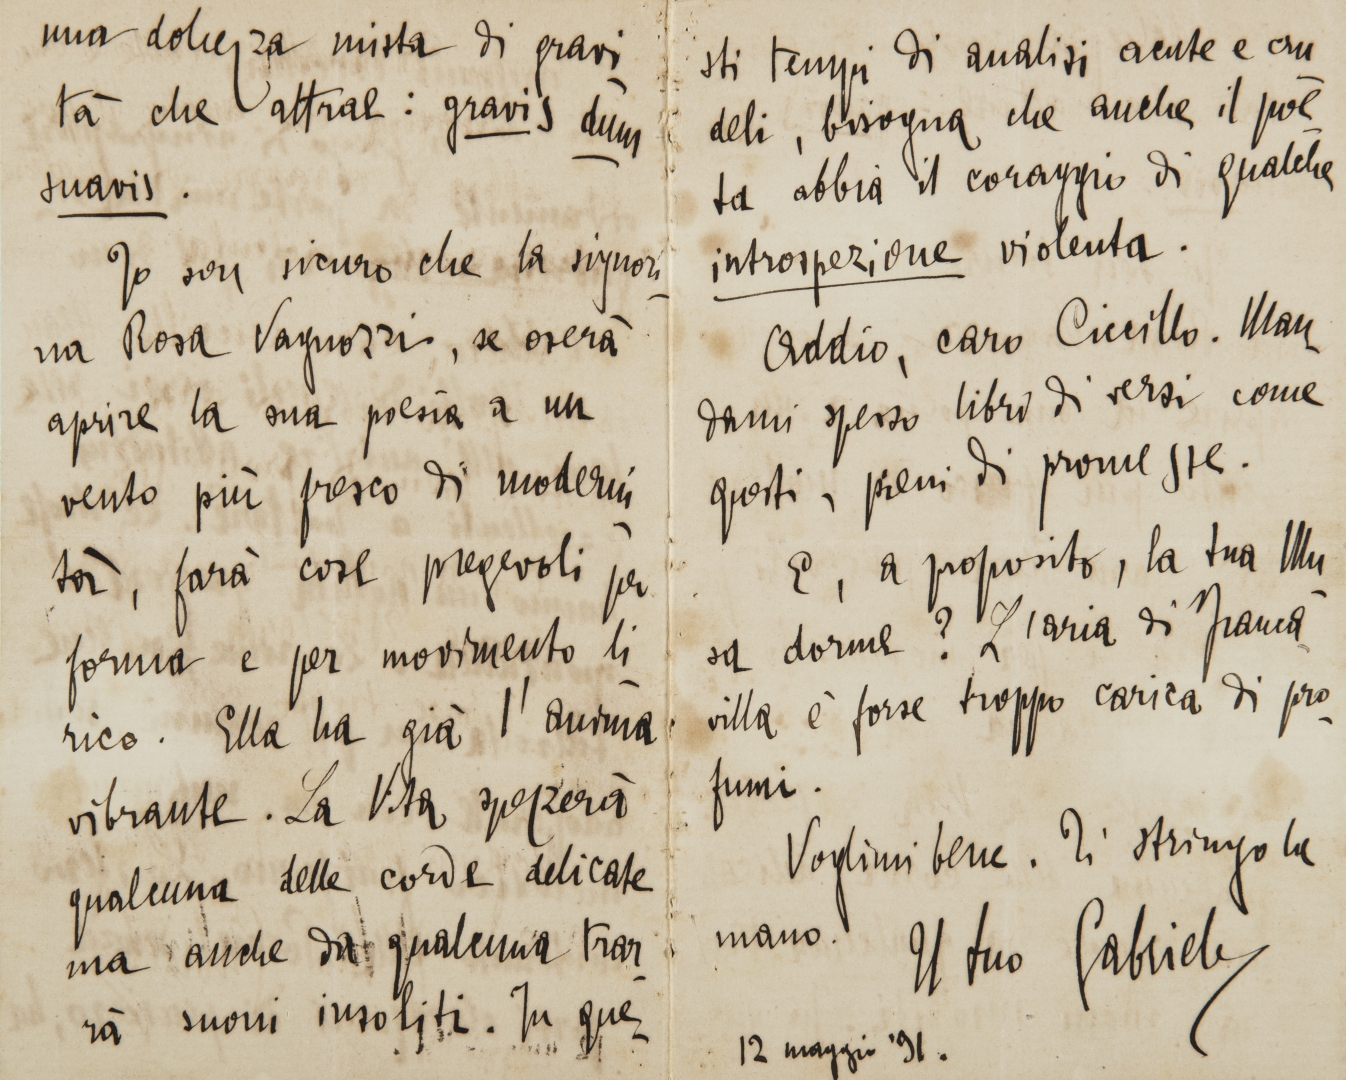 una dolcezza mista di gravi
tà che attrae: gravis dum
suavis.
Io son sicuro che la signori
na Rosa Vagnozzi, se oserà
aprire la sua poesia a un
vento più fresco di moderni
tà, farà cose pregevoli per
forma e per movimento li
rico. Ella ha già l'anima
vibrante. La Vita spezzerà
qualcuna delle corde delicate
ma anche da qualcuna trar
rà suoni insoliti. In que-
sti tempi di analisi acute e cru
deli, bisogna che anche il poe
ta abbia il coraggio di qualche
introspezione violenta.
Addio, caro Ciccillo. Man
dami spesso libri di versi come
questi, pieni di promesse.
E, a proposito, la tua Mu
sa dorme? L'aria di Franca
villa è forse troppo carica di pro-
fumi.
Voglimi bene. Ti stringo la
mano.
Il tuo Gabriele
12 maggio '91.